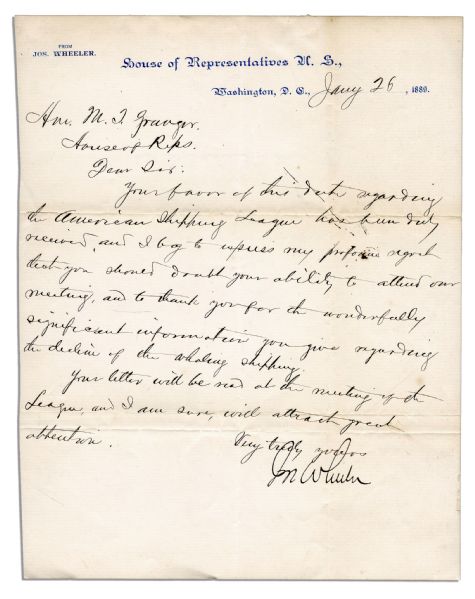 FROM
JOS. WHEELER.
House of Representatives U. S.,
Washington, D. C., Jany 26, 1889.
Hon. M. T. Granger.
House of Reps.
Dear Sir:
Your favor of this date regarding
the American Shipping League has been duly
received, and I beg to express my profound regret
that you should doubt your ability to attend our
meeting, and to thank you for the wonderfully
significant information you give regarding
the decline of the whaling shipping.
Your letter will be read at the meeting of the
League, and I am sure, will attract great
attention.
Very truly yours
Jos Wheeler